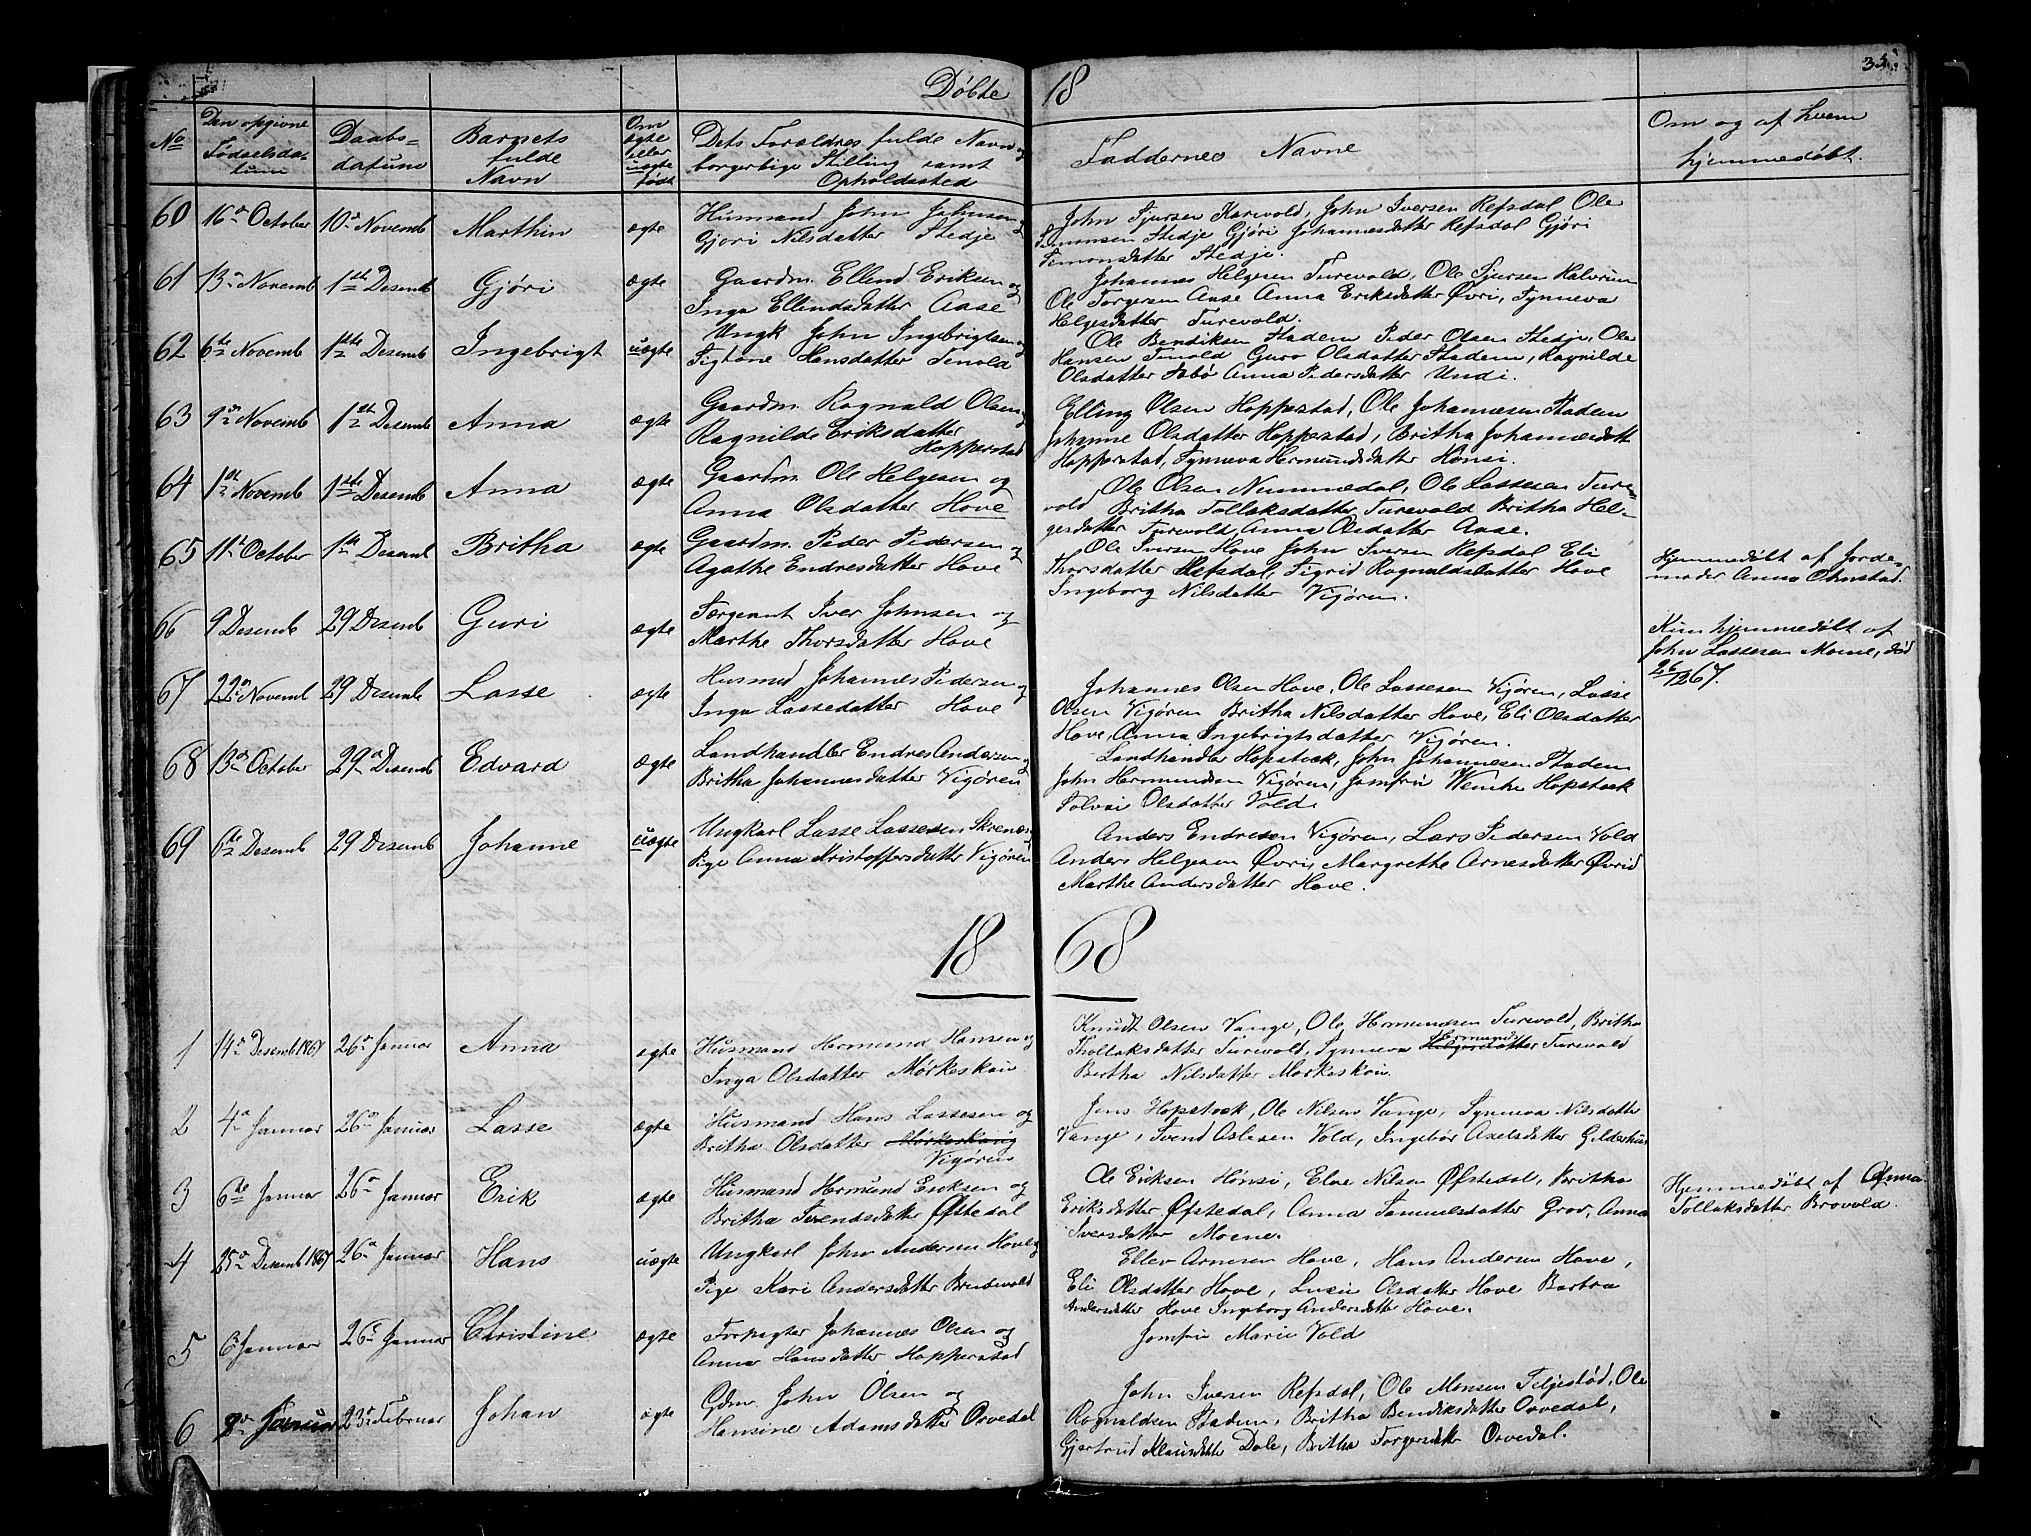 Døbte 18
No
Den opgivne Fødselsdatum
Daabsdatum
Barnets fulde Navn
Om ægte eller uægte født
Dets Foræeldres fulde Navn og borgerlige Stilling samt Opholdssted
Faddernes Navne
Om og af hvem hjemmedøbt.
60 16de October 10de Novemb Marthin ægte Husmand John Johnsen og
Gjøri Nilsdatter Stedje
John Sjursen Karivold, John Iversen Refsdal Ole
Simonsen Stedje Gjøri Johannesdatter Refsdal Gjøri
Simonsdatter Stedje.
61 13de Novemb 1ste Desemb Gjøri ægte Gaardm. Ellend Eriksen og
Inga Ellendsdatter Aase
Johannes Helgesen Turevold, Ole Sjursen Halvrim
Ole Torgersen Aase Anna Eriksdatter Øvri, Synneva
Helgesdatter Turevold.
62 6te Novemb 1ste Desemb Ingebrigt uægte Ungk John Ingebrigtsen og
Sigtone Hansdatter Tenold
Ole Bendiksen Stadem Peder Olsen Stedje, Ole
Hansen Tenold Guro Olsdatter Stadem, Ragnilde
Olsdatter Sabø Anna Pedersdatter Undi.
63 9de Novemb 1ste Desemb Anna ægte Gaardm. Ragnald Olsen og
Ragnilde Eriksdatter
Hopperstad
Elling Olsen Hoppestad, Ole Johannesen Stadem
Johanne Olsdatter Hoppestad, Britha Johannesdatt
Hopperstad, Synneva Hermundsdatter Hønsi.
64 1ste Novemb 1ste Desemb Anna ægte Gaardm Ole Helgesen og
Anna Olsdatter Hove
Ole Olsen Nummedal, Ole Lassesen Ture-
vold Britha Tollaksdatter Turevold Britha Hel-
gesdatter Turevold, Anna Olsdatter Aase.
65 11te October 1ste Desemb Britha ægte Gaardm. Peder Pedersen og
Agathe Endresdatter Hove
Ole Iversen Hove John Iversen Refsdal Eli
Thorsdatter Refsdal, Sigrid Ragnaldsdatter Hove
Ingeborg Nilsdatter Vigøren.
Hjemmedøbt af Jorde-
moder Anna Ohnstad.
66 9 Desemb 29 Desemb Guri ægte Særgeant Iver Johnsen og
Marthe Thorsdatter Hove
Kun hjemmedøbt af
John Lassesen Moene, død
26/12 67.
67 22de Novemb 29 Desemb Lasse ægte Husmd Johannes Pedersen og
Inga Lassedatter Hove
Johannes Olsen Hove, Ole Lassesen Vigøren, Lasse
Olsen Vigøren Britha Nilsdatter Hove, Eli Olsdatter
Hove, Anna Ingebrigtsdatter Vigøren.
68 13de October 29de Desemb Edvard ægte Landhandler Endre Andersen og
Britha Johannesdatter Vigøren
Landhandler Hopstock, John Johannesen Stadem
John Hermundsen Vigøren, Jomfru Wenche Hopstock
Solvei Olsdatter Vold.
69 6te Desemb 29 Desemb Johanne uægte Ungkarl Lasse Lassesen
Pige Anna Kristoffersdatter Vigøren
Anders Endresen Vigøren, Lars Pedersen Vold
Anders Helgesen Øvri, Margrethe Arnesdatter Øvrid
Marthe Andersdatter Hove.
18 68
1 14de Desemb 1867 26de Januar Anna ægte Husmand Hermund Hansen og
Inga Olsdatter Mørkeskou
Knudt Olsen Vange, Ole Hermundsen Turevold, Britha
Thollaksdatter Turevold, Synneva Hermunds Helgesdatter Turevold
Bertha Nilsdatter Mørkeskou.
2 4de Januar 26de Januar Lasse ægte Husmand Hans Lassesen og
Britha Olsdatter Mørkeskoug
Vigøren
Jens Hopstock, Ole Nilsen Vange, Synneva Nilsdatter
Vange, Svend Aslesen Vold, Ingebor Axelsdatter Gildeshus
3 6te Januar 26de Januar Erik ægte Husmand Hermund Eriksen og
Britha Svendsdatter Øfstedal
Ole Eriksen Hønsi, Elve Nilsen Øfstedal, Britha
Eriksdatter Øfstedal, Anna Samuelsdatter Grov, Anna
Iversdatter Moene.
Hjemmedøbt af Anna
Tollaksdatter Brovold.
4 25de Desemb 1867 26de Januar Hans uægte Ungkarl John Andersen Hove og
Pige Kari Andersdatter
Ellev Arnesen Hove, Hans Andersen Hove,
Eli Olsdatter Hove, Lusie Olsdatter Hove Barbra
Andersdatter Hove Ingeborg Andersdatter Hove.
5 6 Januar 26de Januar Christine ægte Forpagter Johannes Olsen og
Anna Hansdatter Hopperstad
Jomfru Marie Vold
6 8de Januar 23de Februar Johan ægte Gdm. John Olsen og
Hansine Adamsdatter Orvedal
John Iversen Refsdal, Ole Monsen Feljestød, Ole
Ragnaldsen Stadem, Britha Bendiksdatter Orvedal,
Gjertrud Klausdatter Dale, Britha Torgersdatter Orvedal.